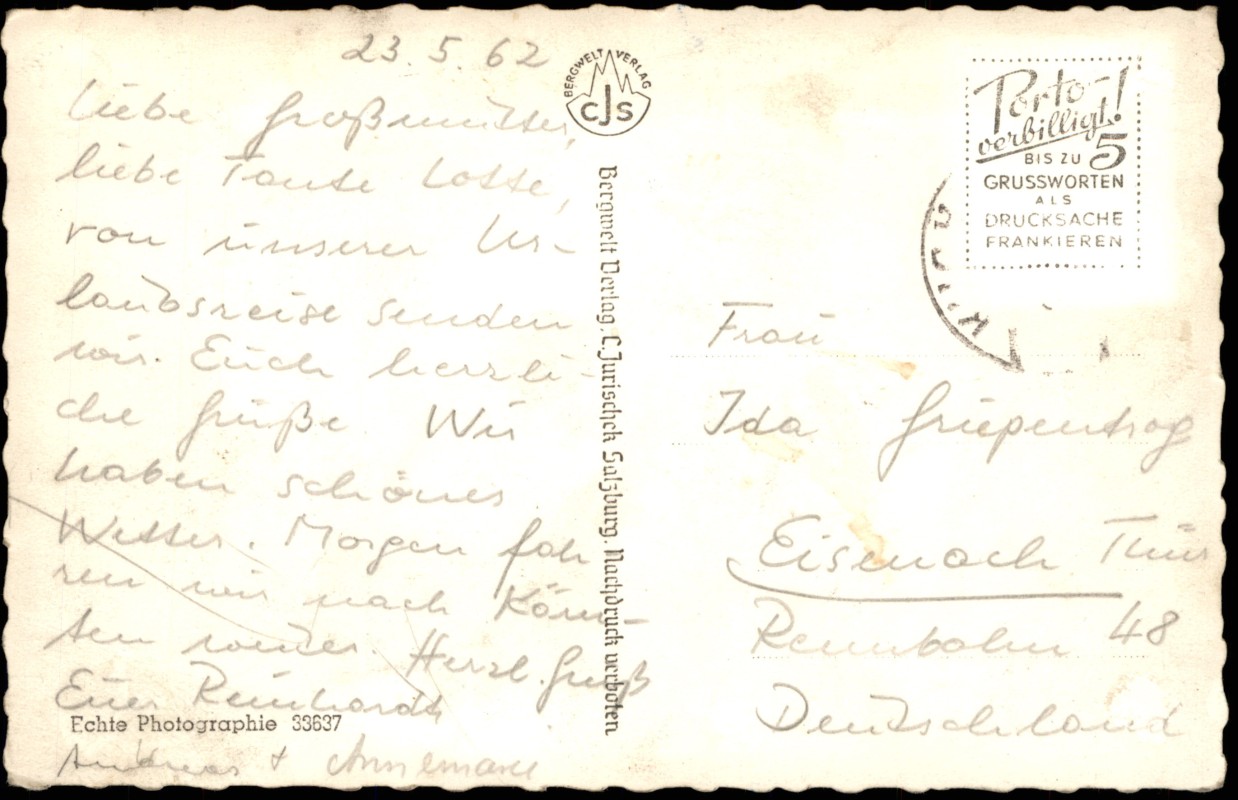 23.5.62
Liebe Großmutter,
liebe Tante Lotte,
von unserer Ur-
laubsreise senden
wir Euch herzli-
che Grüße. Wir
haben schönes
Wetter. Morgen fah
ren wir nach Kärn-
ten weiter. Herzl. Gruß
Euer Reinhardt
Echte Photographie 33637
Andreas + Annemarie
BERGWELT VERLAG
CJS
Bergwelt Verlag, C. Jurischek Salzburg. Nachdruck verboten
Porto-
verbilligt!
BIS ZU 5
GRUSSWORTEN
ALS
DRUCKSACHE
FRANKIEREN
Frau
Ida Griepentrog
Eisenach Thür
Rennbahn 48
Deutschland